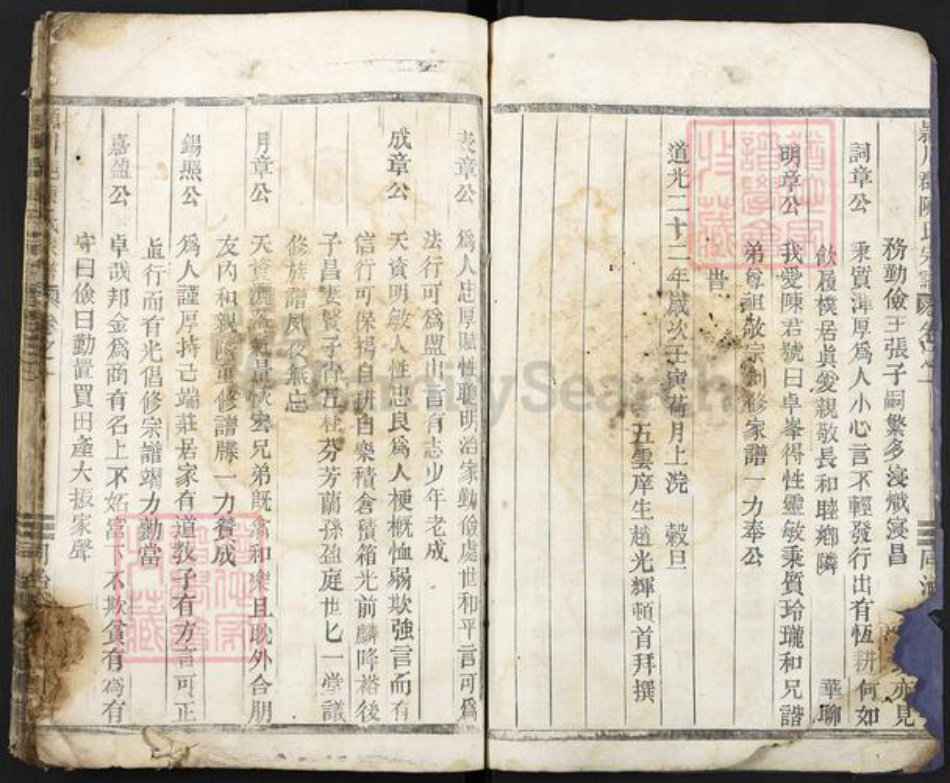 務勤儉王張子嗣繁多寖熾寖昌
亦見
詞章公 秉質渾厚爲人小心言不輕發行出有恆耕何如
飲履樸居眞愛親敬長和睦鄉隣 華聊
明章公 我愛陳君號曰卓峯得性靈敏秉質玲瓏和兄諧
弟尊祖敬宗創修家譜一力奉公
旹
道光二十二年歲次壬寅荷月上浣 穀旦
五雲庠生趙光輝頓首拜撰
表章公 爲人忠厚賦性聰明治家勤儉處世和平言可爲
法行可爲盟出言有志少年老成
成章公 天資明敏人性忠良爲人梗概恤弱欺強言而有
信行可保揚自耕自樂積倉積箱光前麟降裕後
子昌妻賢子肖五桂芬芳蘭孫盈庭世匕一堂議
修族譜夙夜無忘
月章公 天資灑落氣量恢宏兄弟既翕和樂且耽外合朋
友內和親隣重修譜牒一力賛成
錫熙公 爲人謹厚持己端莊居家有道敎子有方言可正
直行而有光倡修宗譜竭力勷當
嘉盈公 卓哉邦金爲商有名上不妬富下不欺貧有爲有
守曰儉曰勤置買田產大振家聲
FamilySearch